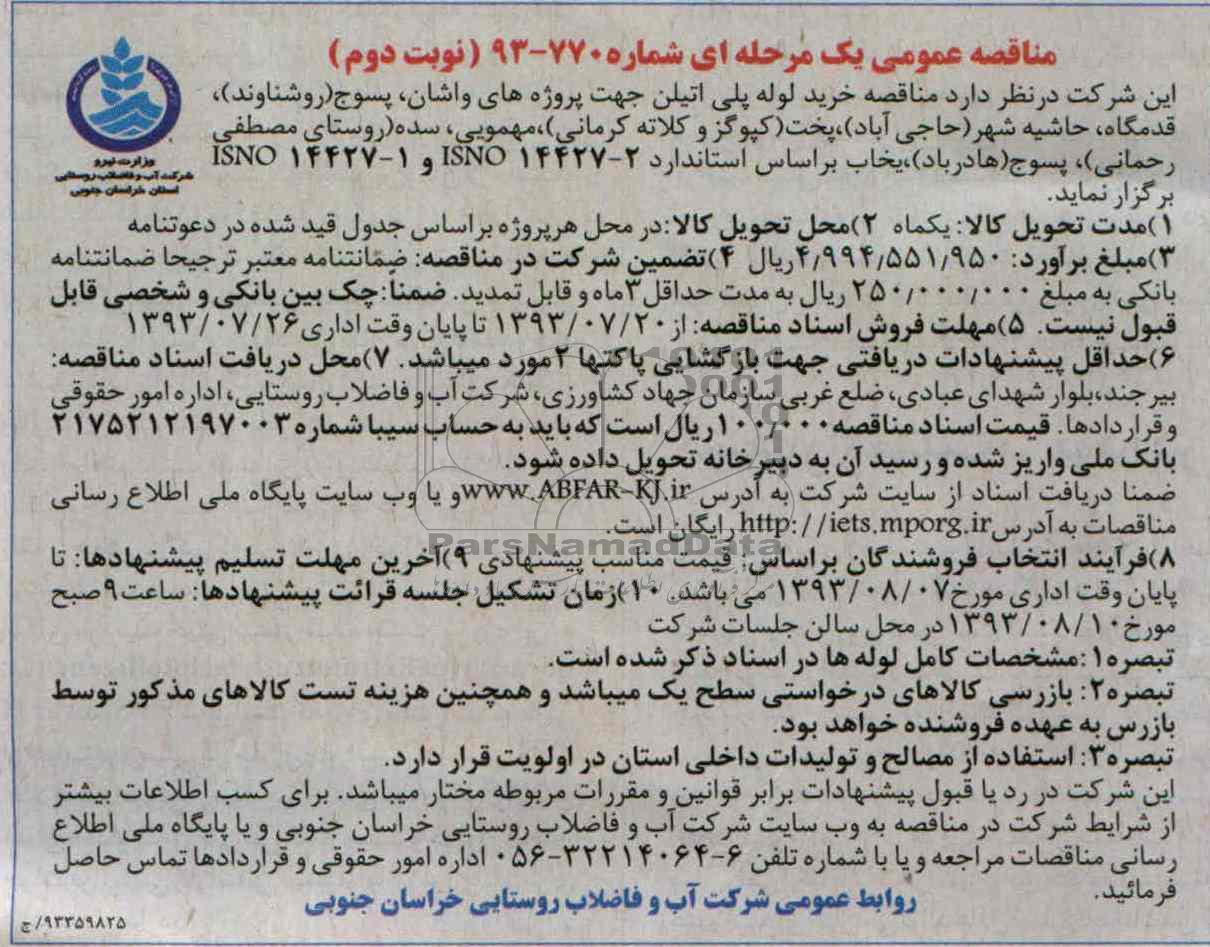 مناقصه عمومی یک مرحله ای شماره ۷۷۰-۹۳ (نوبت دوم)
وزارت نیرو
شرکت آب و فاضلاب روستایی
استان خراسان جنوبی
این شرکت درنظر دارد مناقصه خرید لوله پلی اتیلن جهت پروژه های واشان، پسوج(روشناوند)،
قدمگاه، حاشیه شهر(حاجی آباد)،پخت(کپوگز و کلاته کرمانی)،مهمویی، سده(روستای مصطفی
رحمانی)، پسوج(هادرباد)،یخاب براساس استاندارد ISNO ۱۴۴۲۷-۲ و ISNO ۱۴۴۲۷-۱
برگزار نماید.
۱)مدت تحویل کالا: یکماه ۲)محل تحویل کالا:در محل هرپروژه براساس جدول قید شده در دعوتنامه
۳)مبلغ برآورد: ۴٫۹۹۴٫۵۵۱٫۹۵۰ریال ۴)تضمین شرکت در مناقصه: ضمانتنامه معتبر ترجیحا ضمانتنامه
بانکی به مبلغ ۲۵۰٫۰۰۰٫۰۰۰ ریال به مدت حداقل۳ماه و قابل تمدید. ضمناً:چک بین بانکی و شخصی قابل
قبول نیست. ۵)مهلت فروش اسناد مناقصه: از۱۳۹۳/۰۷/۲۰ تا پایان وقت اداری۱۳۹۳/۰۷/۲۶
۶)حداقل پیشنهادات دریافتی جهت بازگشایی پاکتها ۲مورد میباشد. ۷)محل دریافت اسناد مناقصه:
بیرجند،بلوار شهدای عبادی، ضلع غربی سازمان جهاد کشاورزی، شرکت آب و فاضلاب روستایی، اداره امور حقوقی
و قراردادها. قیمت اسناد مناقصه۱۰۰٫۰۰۰ ریال است که باید به حساب سیبا شماره ۲۱۷۵۲۱۲۱۹۷۰۰۳
بانک ملی واریز شده و رسید آن به دبیرخانه تحویل داده شود.
ضمنا دریافت اسناد از سایت شرکت به آدرس www.ABFAR-KJ.irو یا وب سایت پایگاه ملی اطلاع رسانی
مناقصات به آدرسhttp://iets.mporg.ir رایگان است.
ParsNamadData
۸)فرآیند انتخاب فروشندگان براساس: قیمت مناسب پیشنهادی ۹)آخرین مهلت تسلیم پیشنهادها: تا
پایان وقت اداری مورخ۱۳۹۳/۰۸/۰۷ می باشد. ۱۰)زمان تشکیل جلسه قرائت پیشنهادها: ساعت۹صبح
مورخ۱۳۹۳/۰۸/۱۰در محل سالن جلسات شرکت
تبصره۱:مشخصات کامل لوله ها در اسناد ذکر شده است.
تبصره۲: بازرسی کالاهای درخواستی سطح یک میباشد و همچنین هزینه تست کالاهای مذکور توسط
بازرس به عهده فروشنده خواهد بود.
تبصره۳: استفاده از مصالح و تولیدات داخلی استان در اولویت قرار دارد.
این شرکت در رد یا قبول پیشنهادات برابر قوانین و مقررات مربوطه مختار میباشد. برای کسب اطلاعات بیشتر
از شرایط شرکت در مناقصه به وب سایت شرکت آب و فاضلاب روستایی خراسان جنوبی و یا پایگاه ملی اطلاع
رسانی مناقصات مراجعه و یا با شماره تلفن ۶-۰۵۶-۳۲۲۱۴۰۶۴ اداره امور حقوقی و قراردادها تماس حاصل
فرمائید.
روابط عمومی شرکت آب و فاضلاب روستایی خراسان جنوبی
۹۳۳۵۹۸۲۵/ج